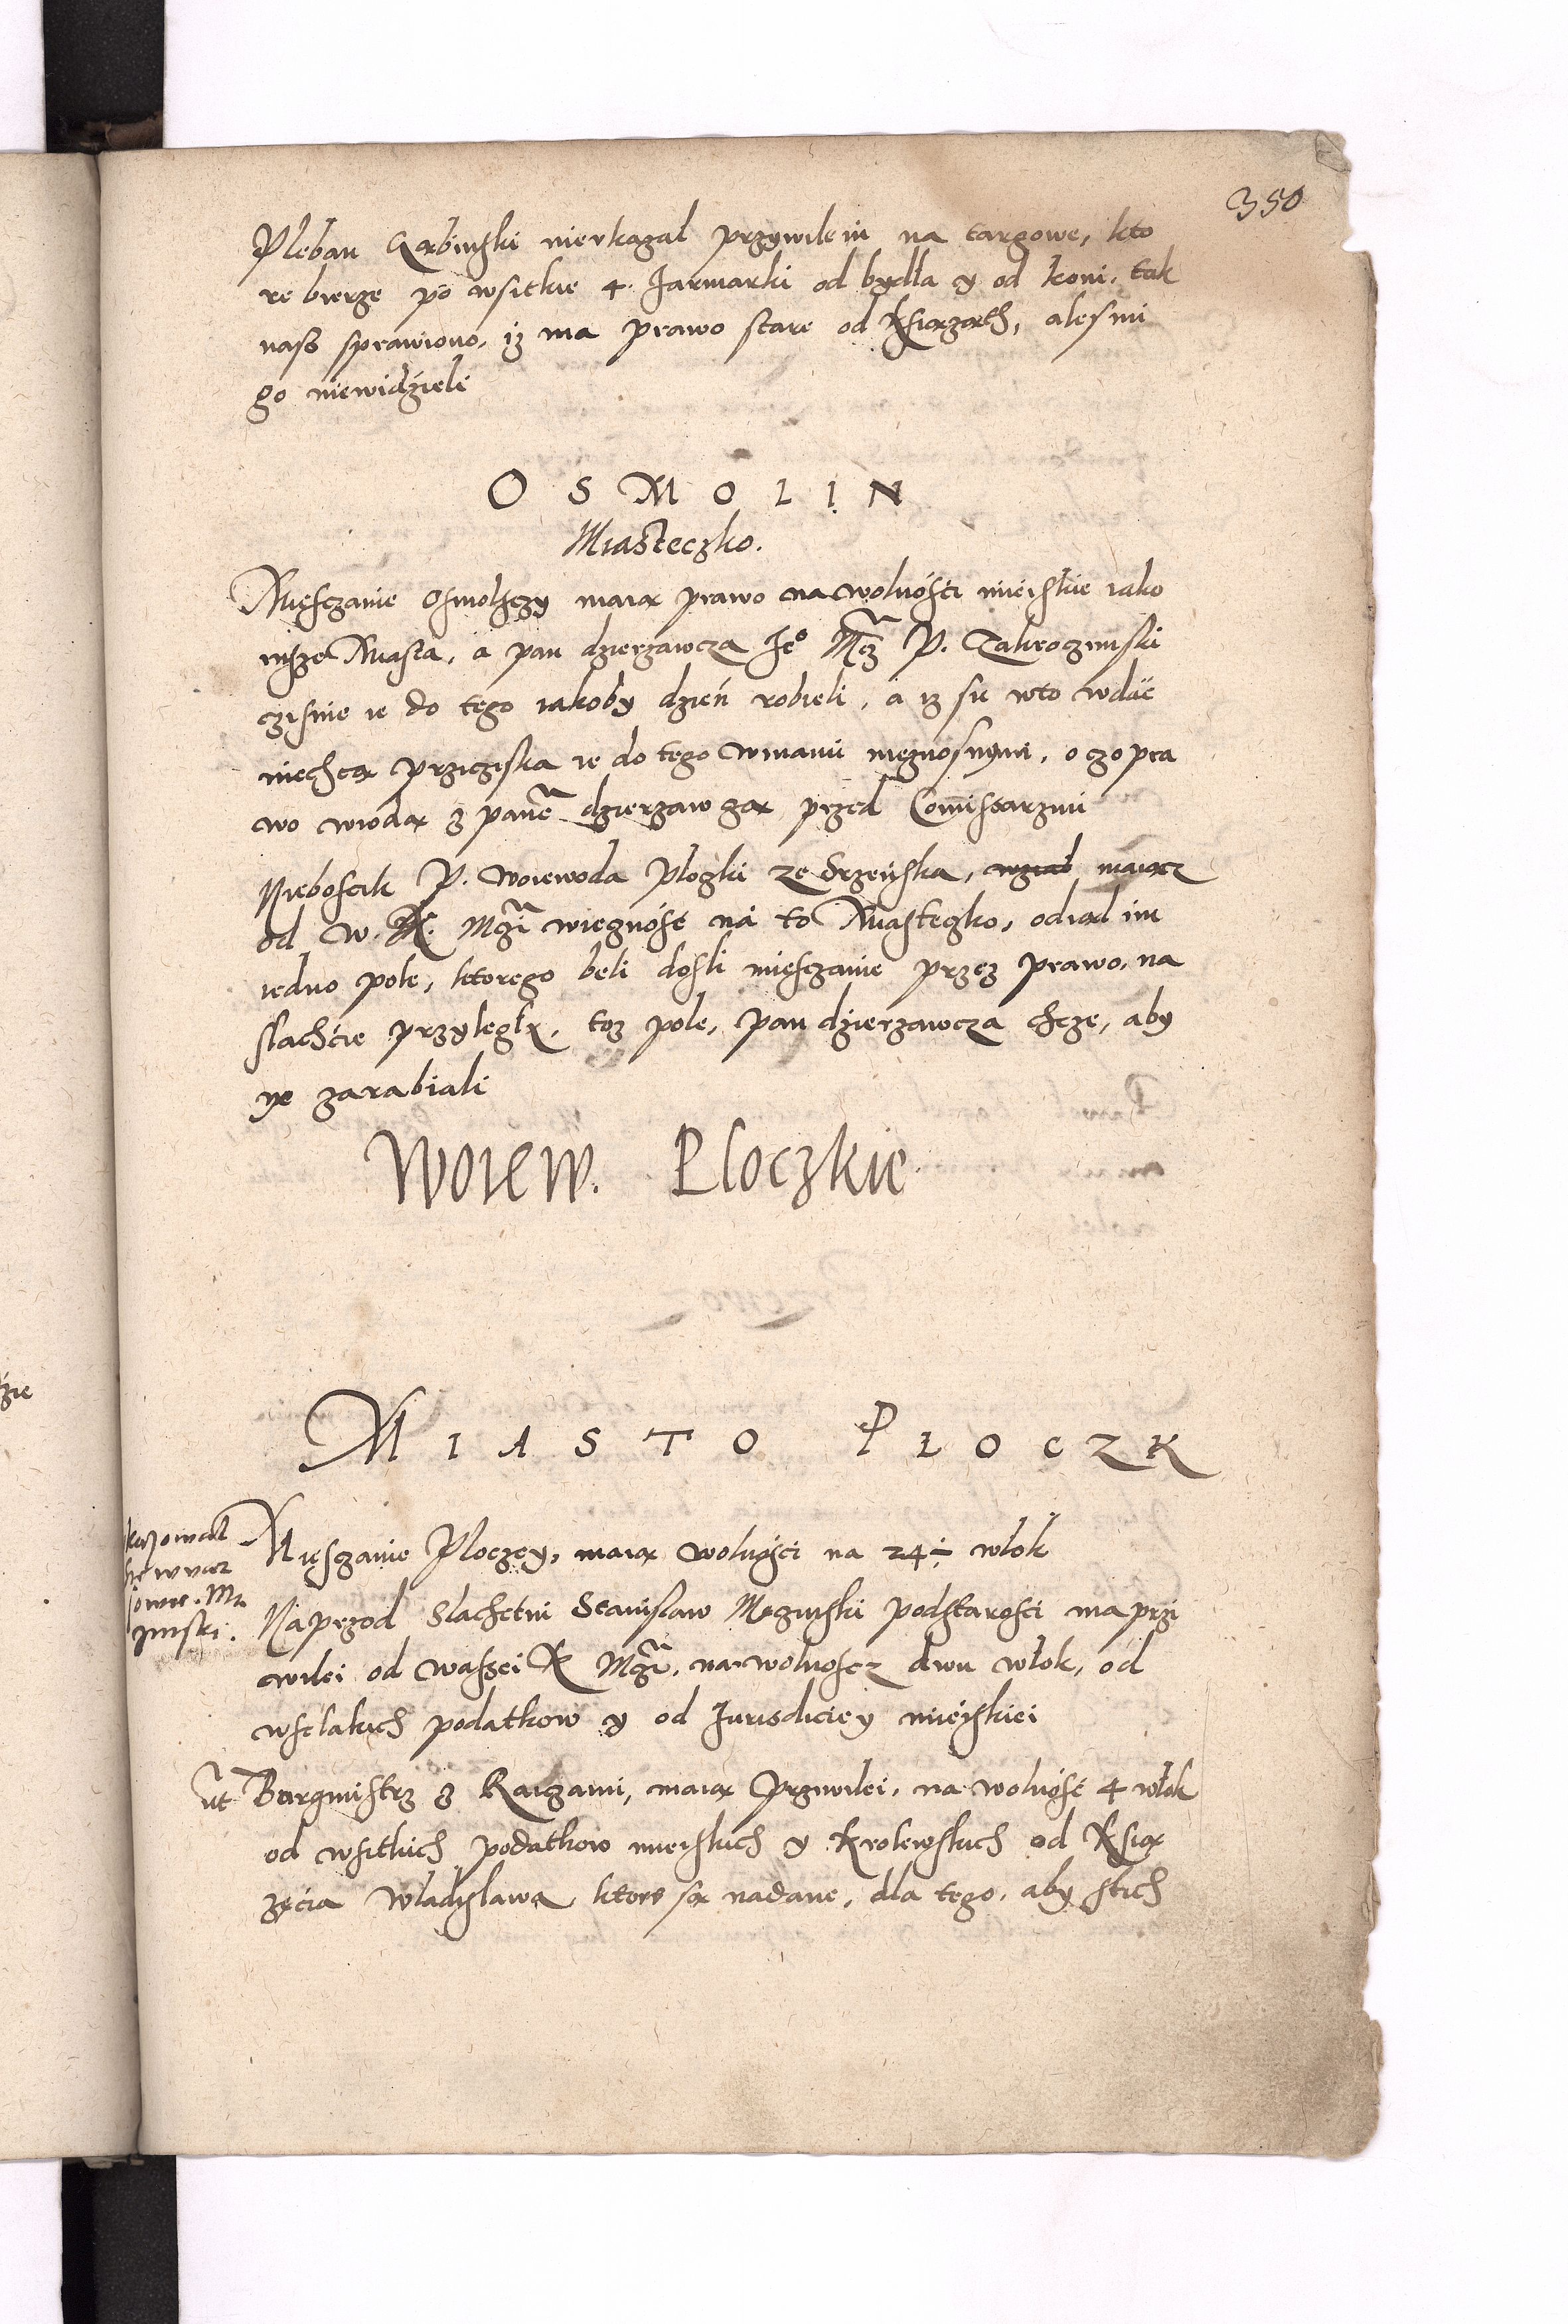 350
Pleban Gąbinski nieukazal przywileiu na targowe, kto
re bierze po wsitkie 4 Iarmarki od bydła y od koni, tak
nasz sprawiono, iz ma prawo stare od Xsiąząth, alesmi
go niewidzieli
OSMOLIN
Miasteczko.
Miesczanie Osmolsczy maią prawo na wolności mieiskie iako
insze Miasta, a pan dzierzawcza Ie° Mcz P. Zakroczimski
czisnie ie do tego iakoby dzień robieli, a iz sie wto wdac
niechcą przicziska ie do tego winami nieznosnymi, o czo pra
wo wiodą z pane dzierzawczą przed Comissarzmi
Nieboscik P. Woiewoda Ploczki ze Srzeńska, maiącz
od W. K. Mczi wiecznośc na to Miasteczko, odiąl im
iedno pole, ktorego beli dosli miesczanie przez prawo, na
slachcie przyległy, toz pole, pan dzierzawcza chcze, aby
ye zarabiali
Woiew. Ploczkie
MIASTO PŁOCZK
Miesczanie Ploczcy, maią wolności na 24÷ włok
Naprzod Slachetni Stanislaw Mczinski podstarosci ma prziwilei od waszei K Mczi, na wolnoscz dwu włok, od
wselakich podatkow y od Iurisdiciey mieiskiei
ut Burgmistrz z Raiczami, maią Prziwilei, na wolność 4 włok
od wsitkich podatkow mieiskich y Krolewskich od Xsią
zęcia Wladyslawa ktore są nadane, dla tego, aby stich